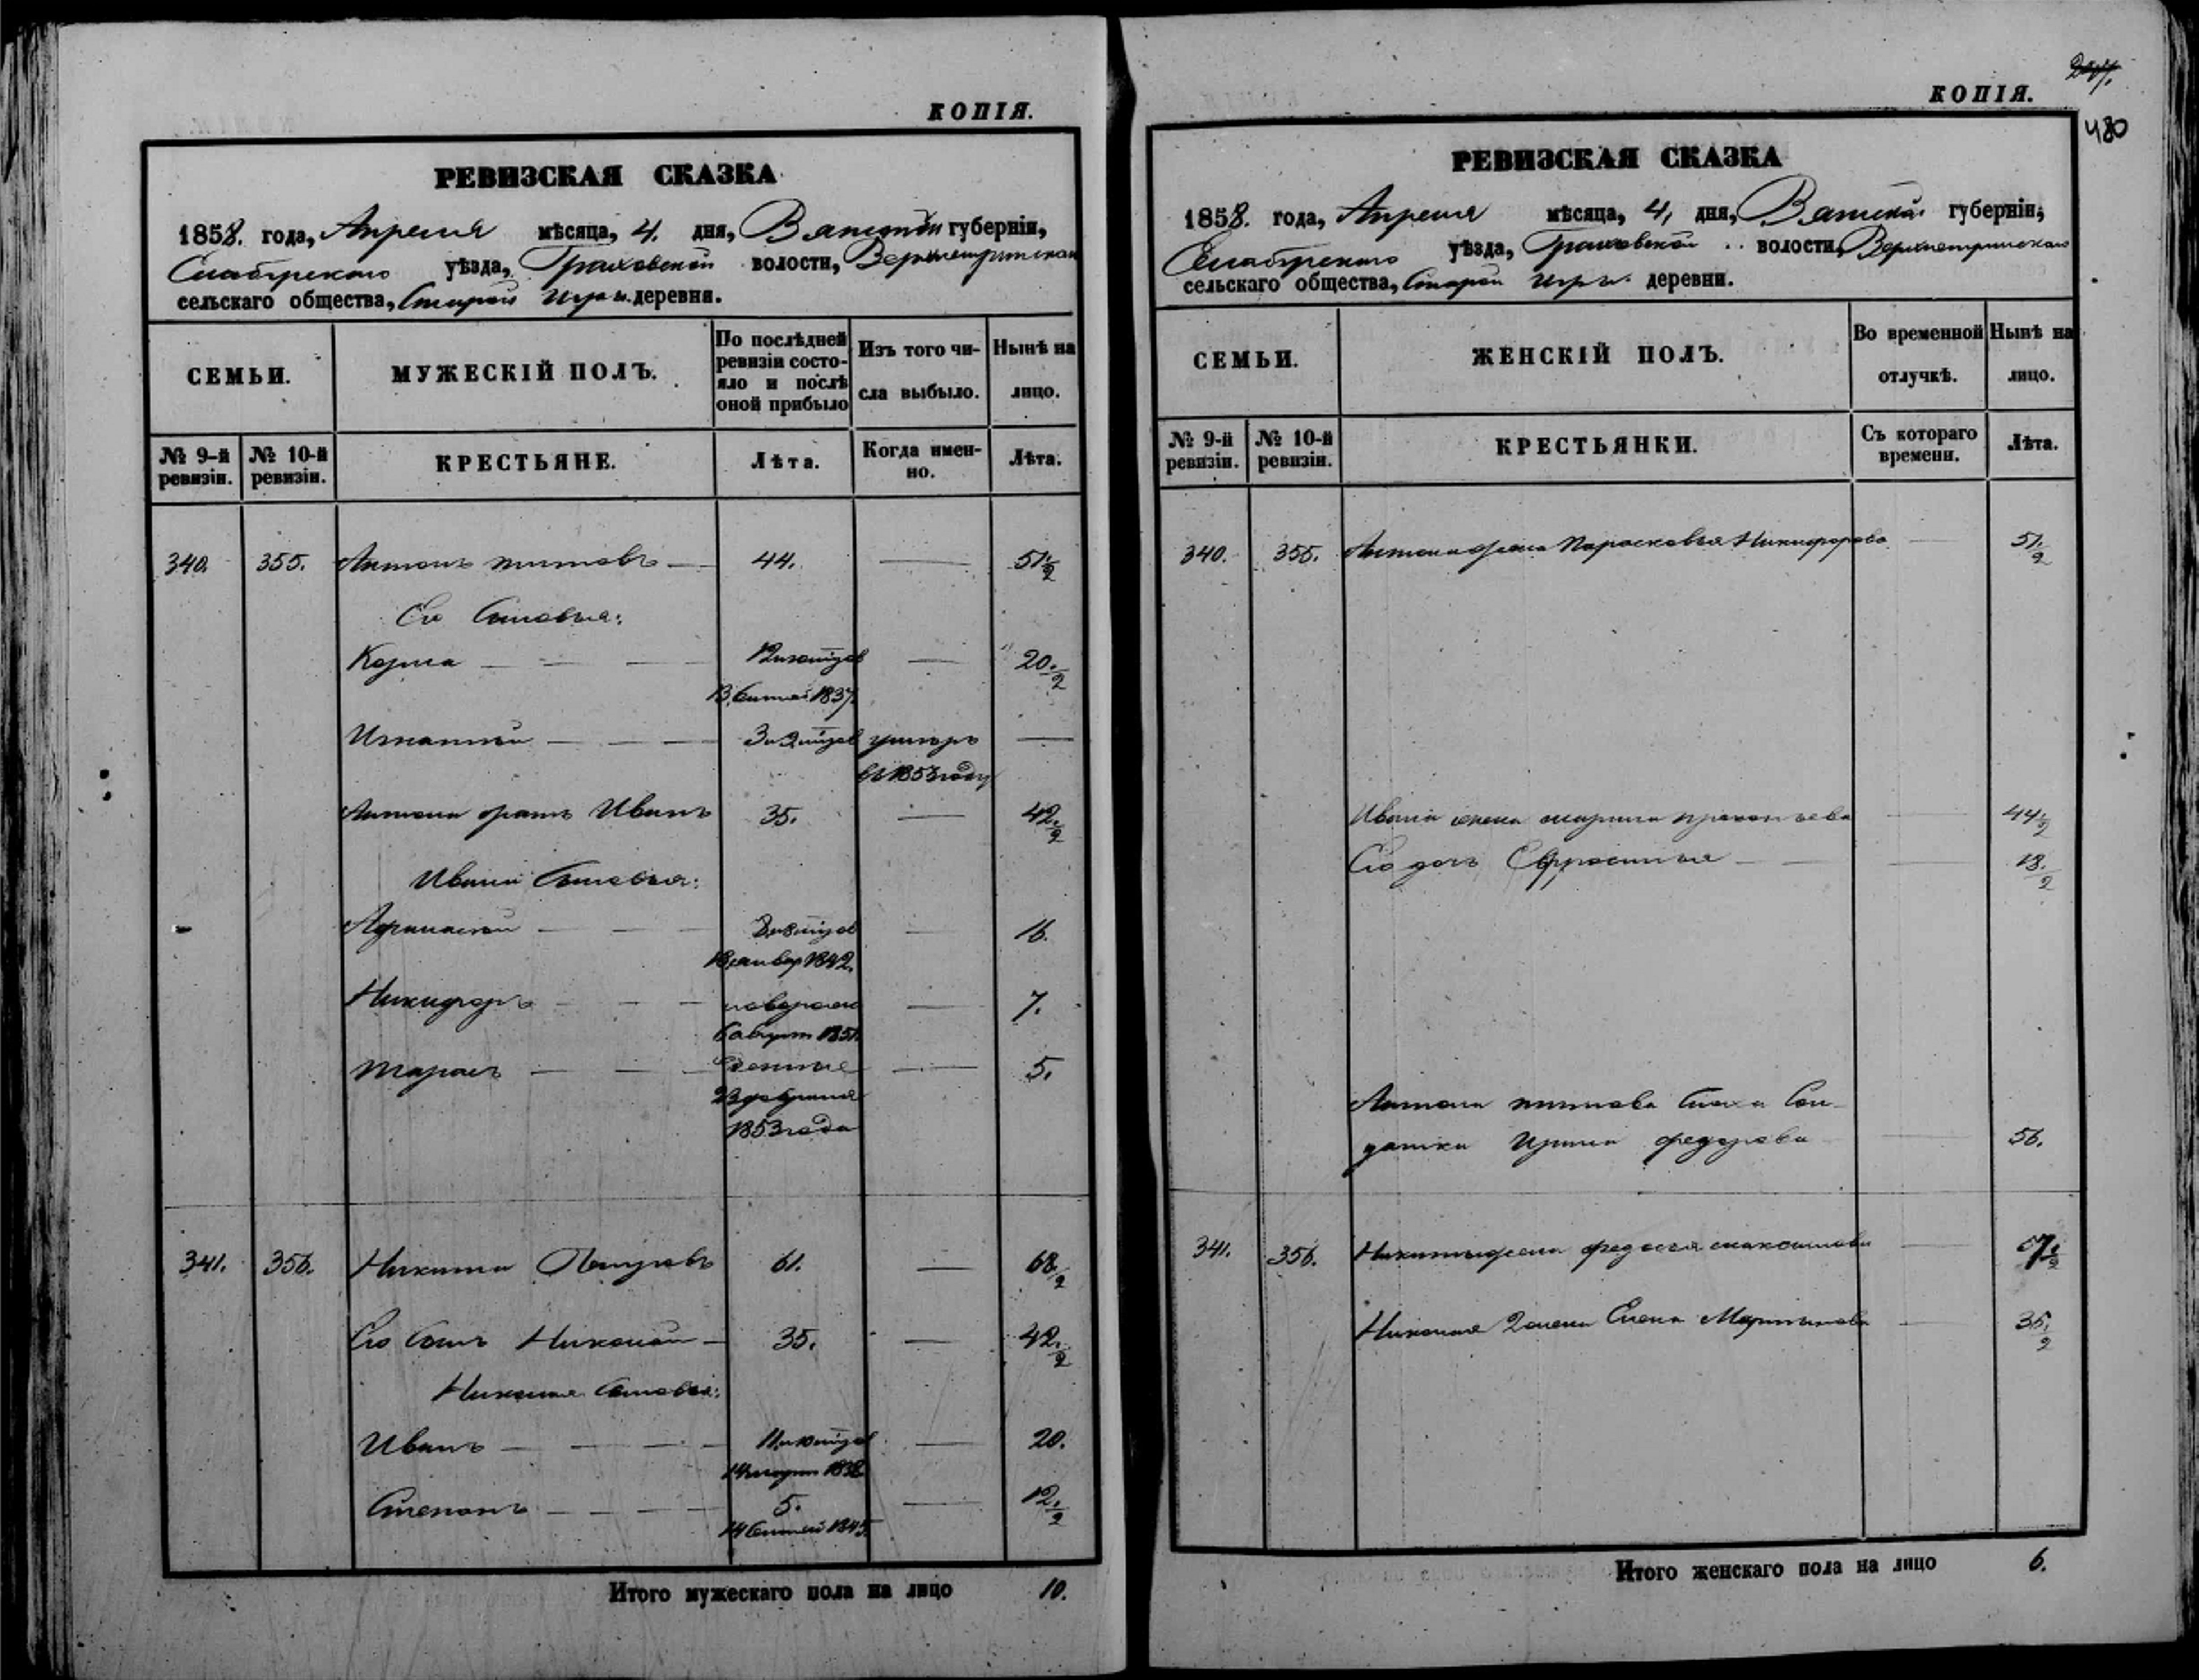 КОПІЯ.
РЕВИЗСКАЯ СКАЗКА
1858. года, Апреля мѣсяца, 4. дня, Вятской губерніи,
Елабужскаго уѣзда, Граховской волости,
сельскаго общества, Старой Игры деревни.
СЕМЬИ.
МУЖЕСКІЙ ПОЛЪ.
По послѣдней ревизіи состояло и послѣ оной прибыло
Изъ того числа выбыло.
Нынѣ на лицо.
№ 9-й ревизіи.
№ 10-й ревизіи.
КРЕСТЬЯНЕ.
Лѣта.
Когда именно.
Лѣта.
340. 355. Антонъ Титовъ — 44. — 51 1/2
Его Сыновья:
Козма — 12 — 20 1/2
13 1837.
Игнатій — 3 умеръ —
въ 1853 году
Антона братъ Иванъ 35. — 42 1/2
Ивана Сыновья:
Афанасій — — 16.
18 январ 1842.
Никифоръ — — 7.
6 август 1851
Тарасъ — — 5.
23 февраля
1853 года
341. 356. Никита 61. — 68 1/2
Его Сынъ Николай — 35. — 42 1/2
Николая Сыновья:
Иванъ — 11 — 20.
14 март 1838
Степанъ — 5. — 12 1/2
14 1845
Итого мужескаго пола на лицо 10.
КОПІЯ.
480
РЕВИЗСКАЯ СКАЗКА
1858. года, Апреля мѣсяца, 4, дня, Вятской губерніи,
Елабужскаго уѣзда, Граховской волости,
сельскаго общества, Старой Игры деревни.
СЕМЬИ.
ЖЕНСКІЙ ПОЛЪ.
Во временной отлучкѣ.
Нынѣ на лицо.
№ 9-й ревизіи.
№ 10-й ревизіи.
КРЕСТЬЯНКИ.
Съ котораго времени.
Лѣта.
340. 355. Антона жена Парасковья Никифорова — 51 1/2
Ивана жена Марина Прокопьева — 44 1/2
Его дочь Ефросинья — 18 1/2
Антона Титова Сноха Сол-
датка Ирина Федорова — 56.
341. 356. Никиты жена Федосья Максимова — 1/2
Николая жена Елена Мартынова — 35 1/2
Итого женскаго пола на лицо 6.